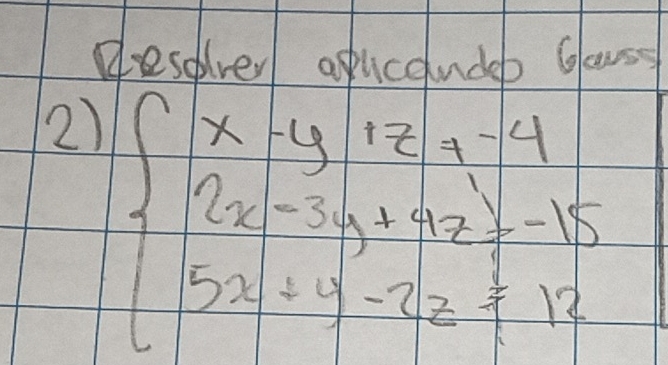 Resolver aplicando Gauss
2) { x - y + z = -4
2x - 3y + 4z = -15
5x + y - 2z = 12